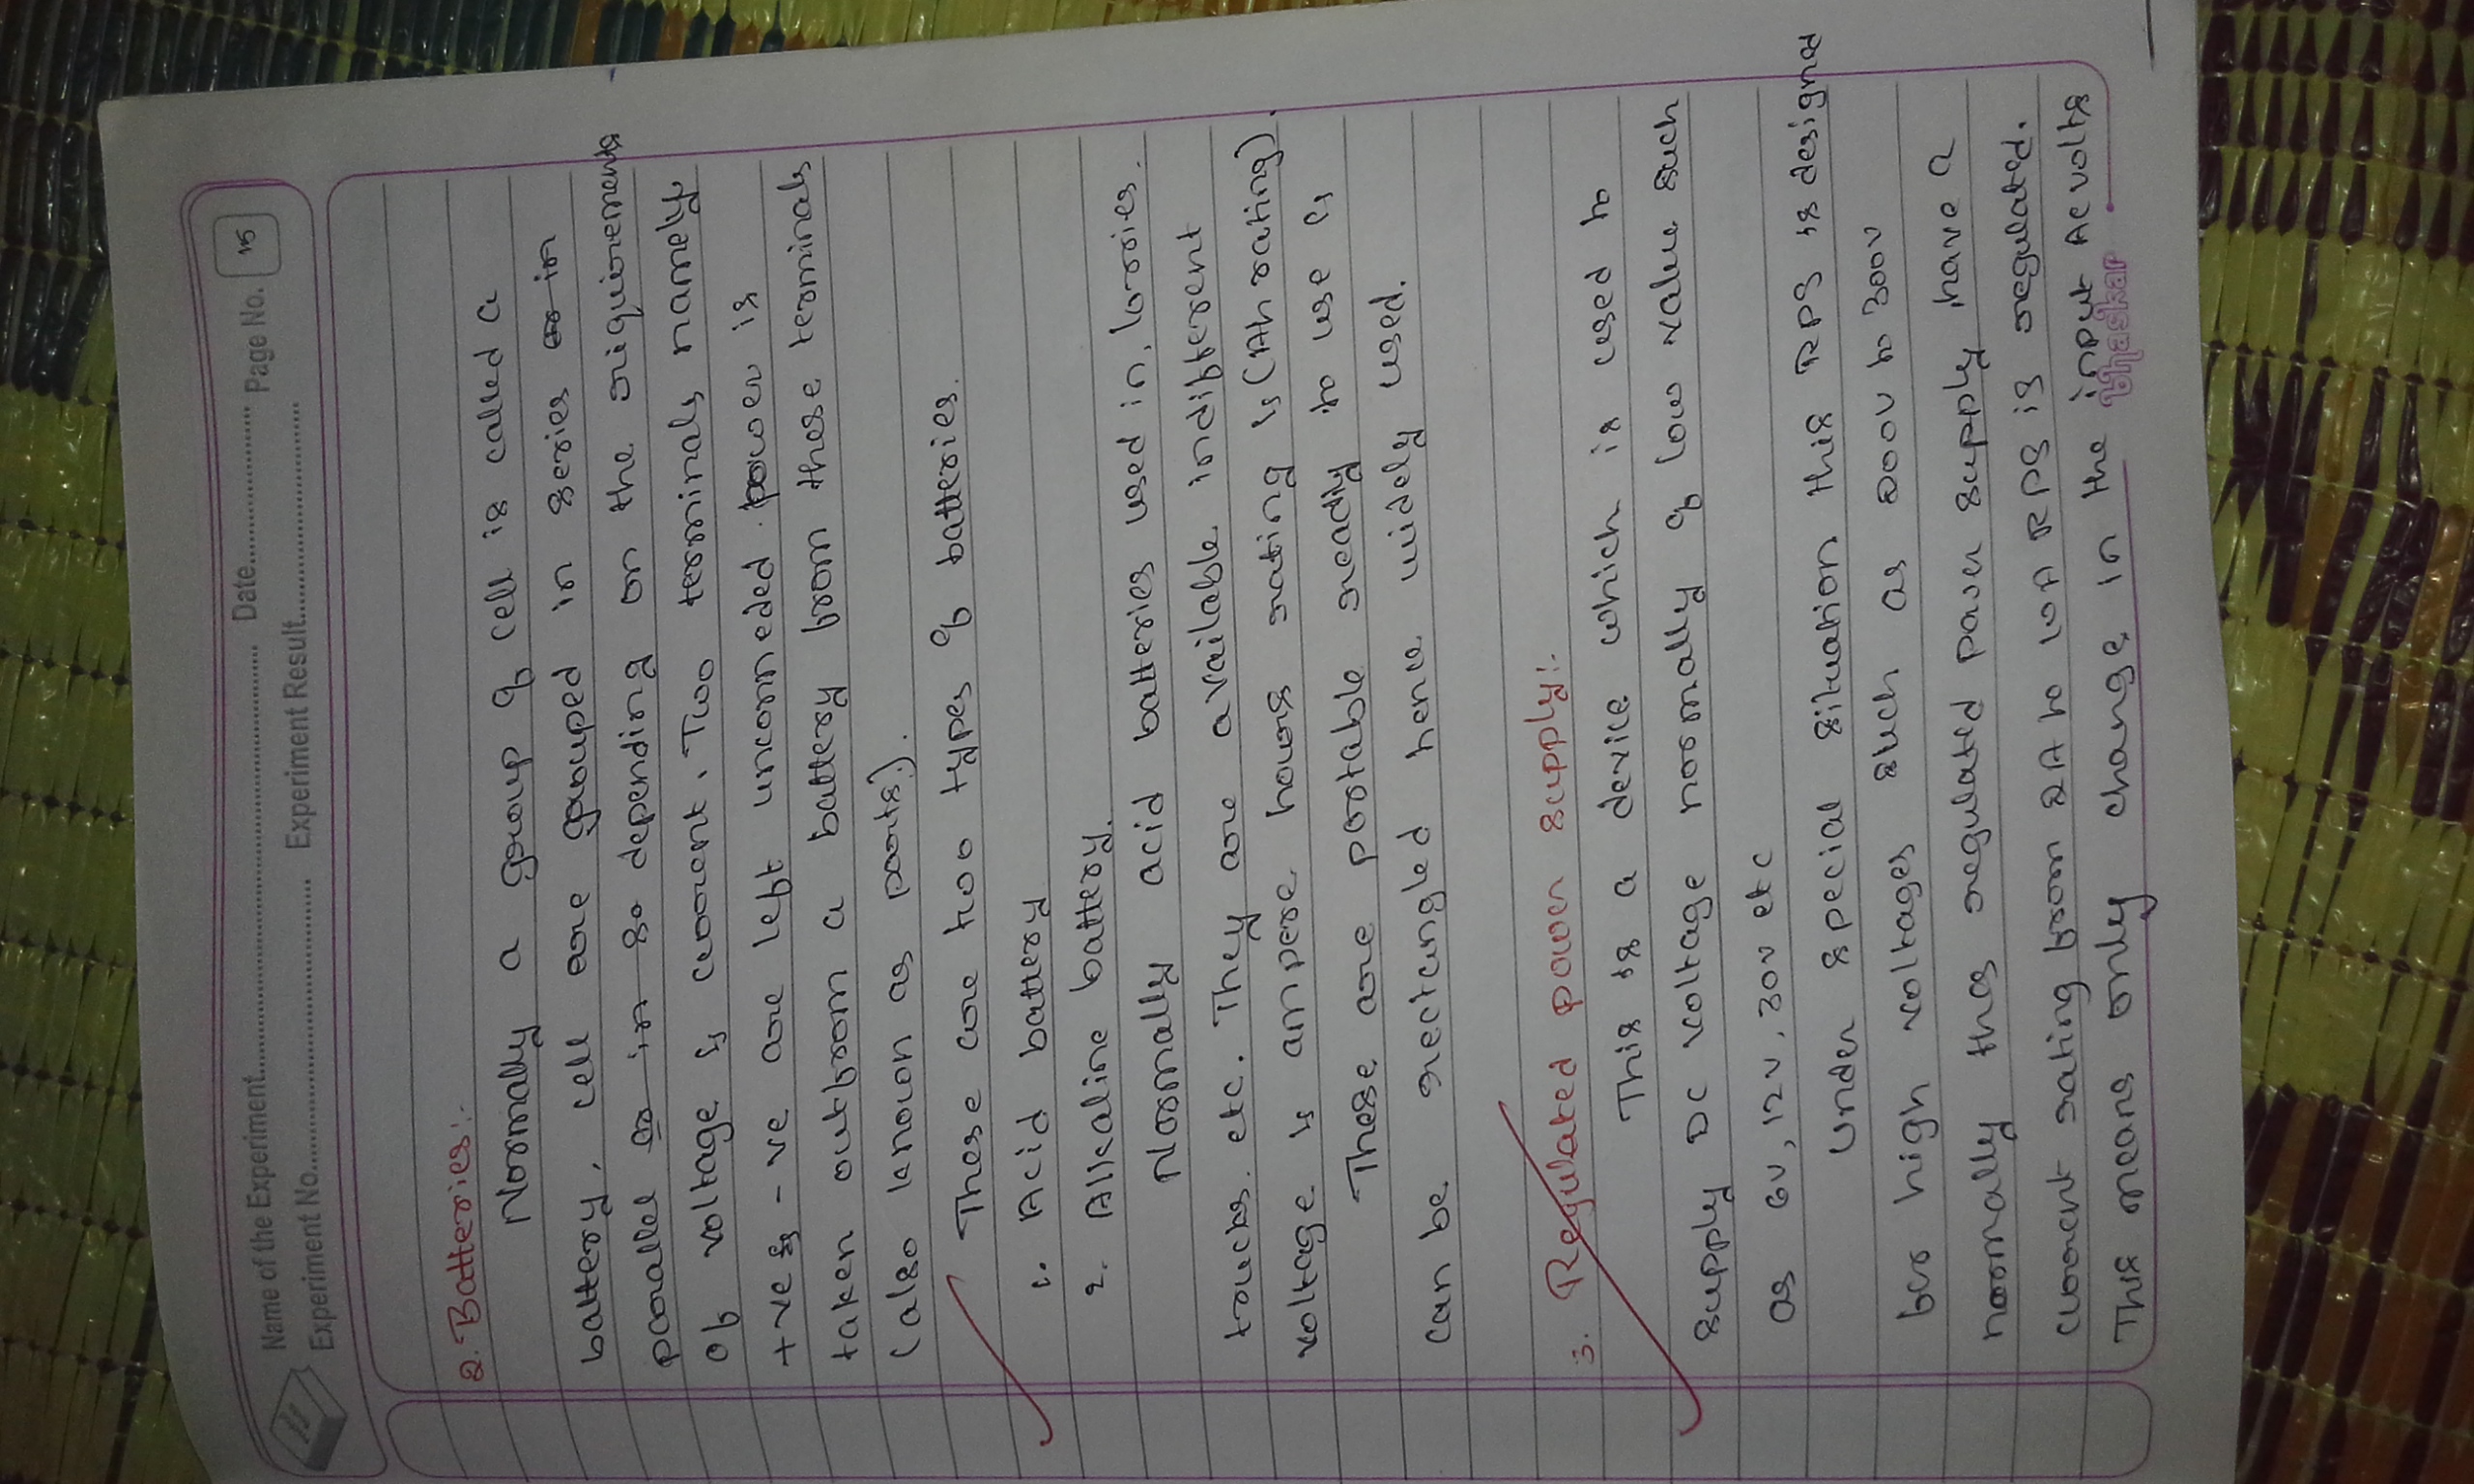 Name of the Experiment.................... Date.................... Page No. 15
Experiment No.................... Experiment Result....................
2. Batteries:-
Normally a group of cell is called a
battery, cell are grouped in series or in
parallel or in so depending on the requirements
of voltage & current. Two terminals namely
+ve & -ve are left unconneded power is
taken out from a battery from these terminals
(also known as ports).
These are two types of batteries.
1. Acid battery
2. Alkaline battery.
Normally acid batteries used in, lorries.
trucks. etc. They are available indifferent
voltage & ampere hours rating & (Ah rating).
These are portable ready to use &
can be rectangled hence widely used.
3. Regulated power supply:-
This is a device which is used to
supply DC voltage normally of low value such
as 6v, 12v, 30v etc
Under special situation this RPS is designd
for high voltages such as 200v to 300v
normally this regulated power supply have a
current rating from 2A to 10A RPS is regulated.
This means only change in the input AC volts
bhaskar